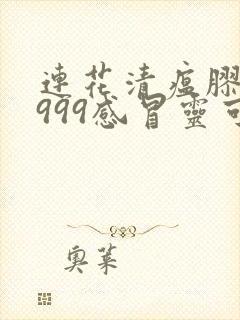 連花清瘟膠
999感冒靈可
奧萊